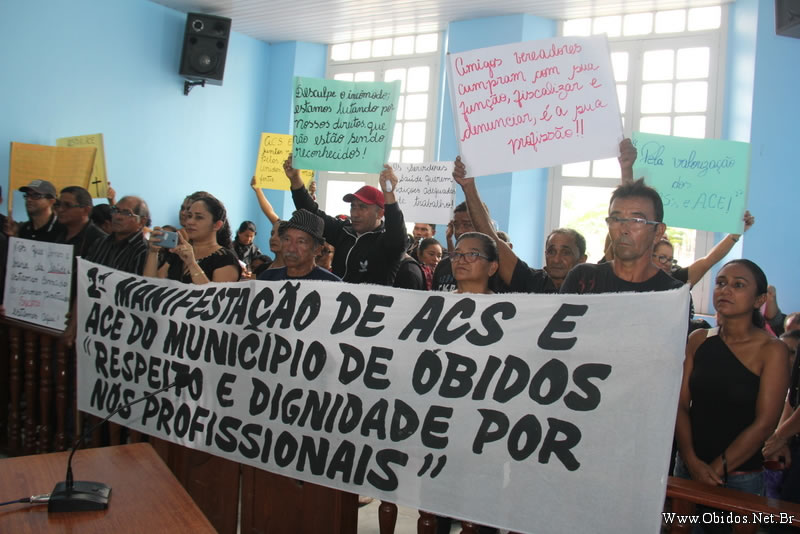 Desculpe o incômodo
estamos lutando por
nossos direitos que
não estão sendo
reconhecidos!
Amigos vereadores
cumpram com sua
função, fiscalizar e
denunciar, é a sua
profissão!!
Pela valorização
dos
ACE!
1ª MANIFESTAÇÃO DE ACS E
ACE DO MUNICÍPIO DE ÓBIDOS
"RESPEITO E DIGNIDADE POR
NÓS PROFISSIONAIS"
www.Obidos.Net.Br